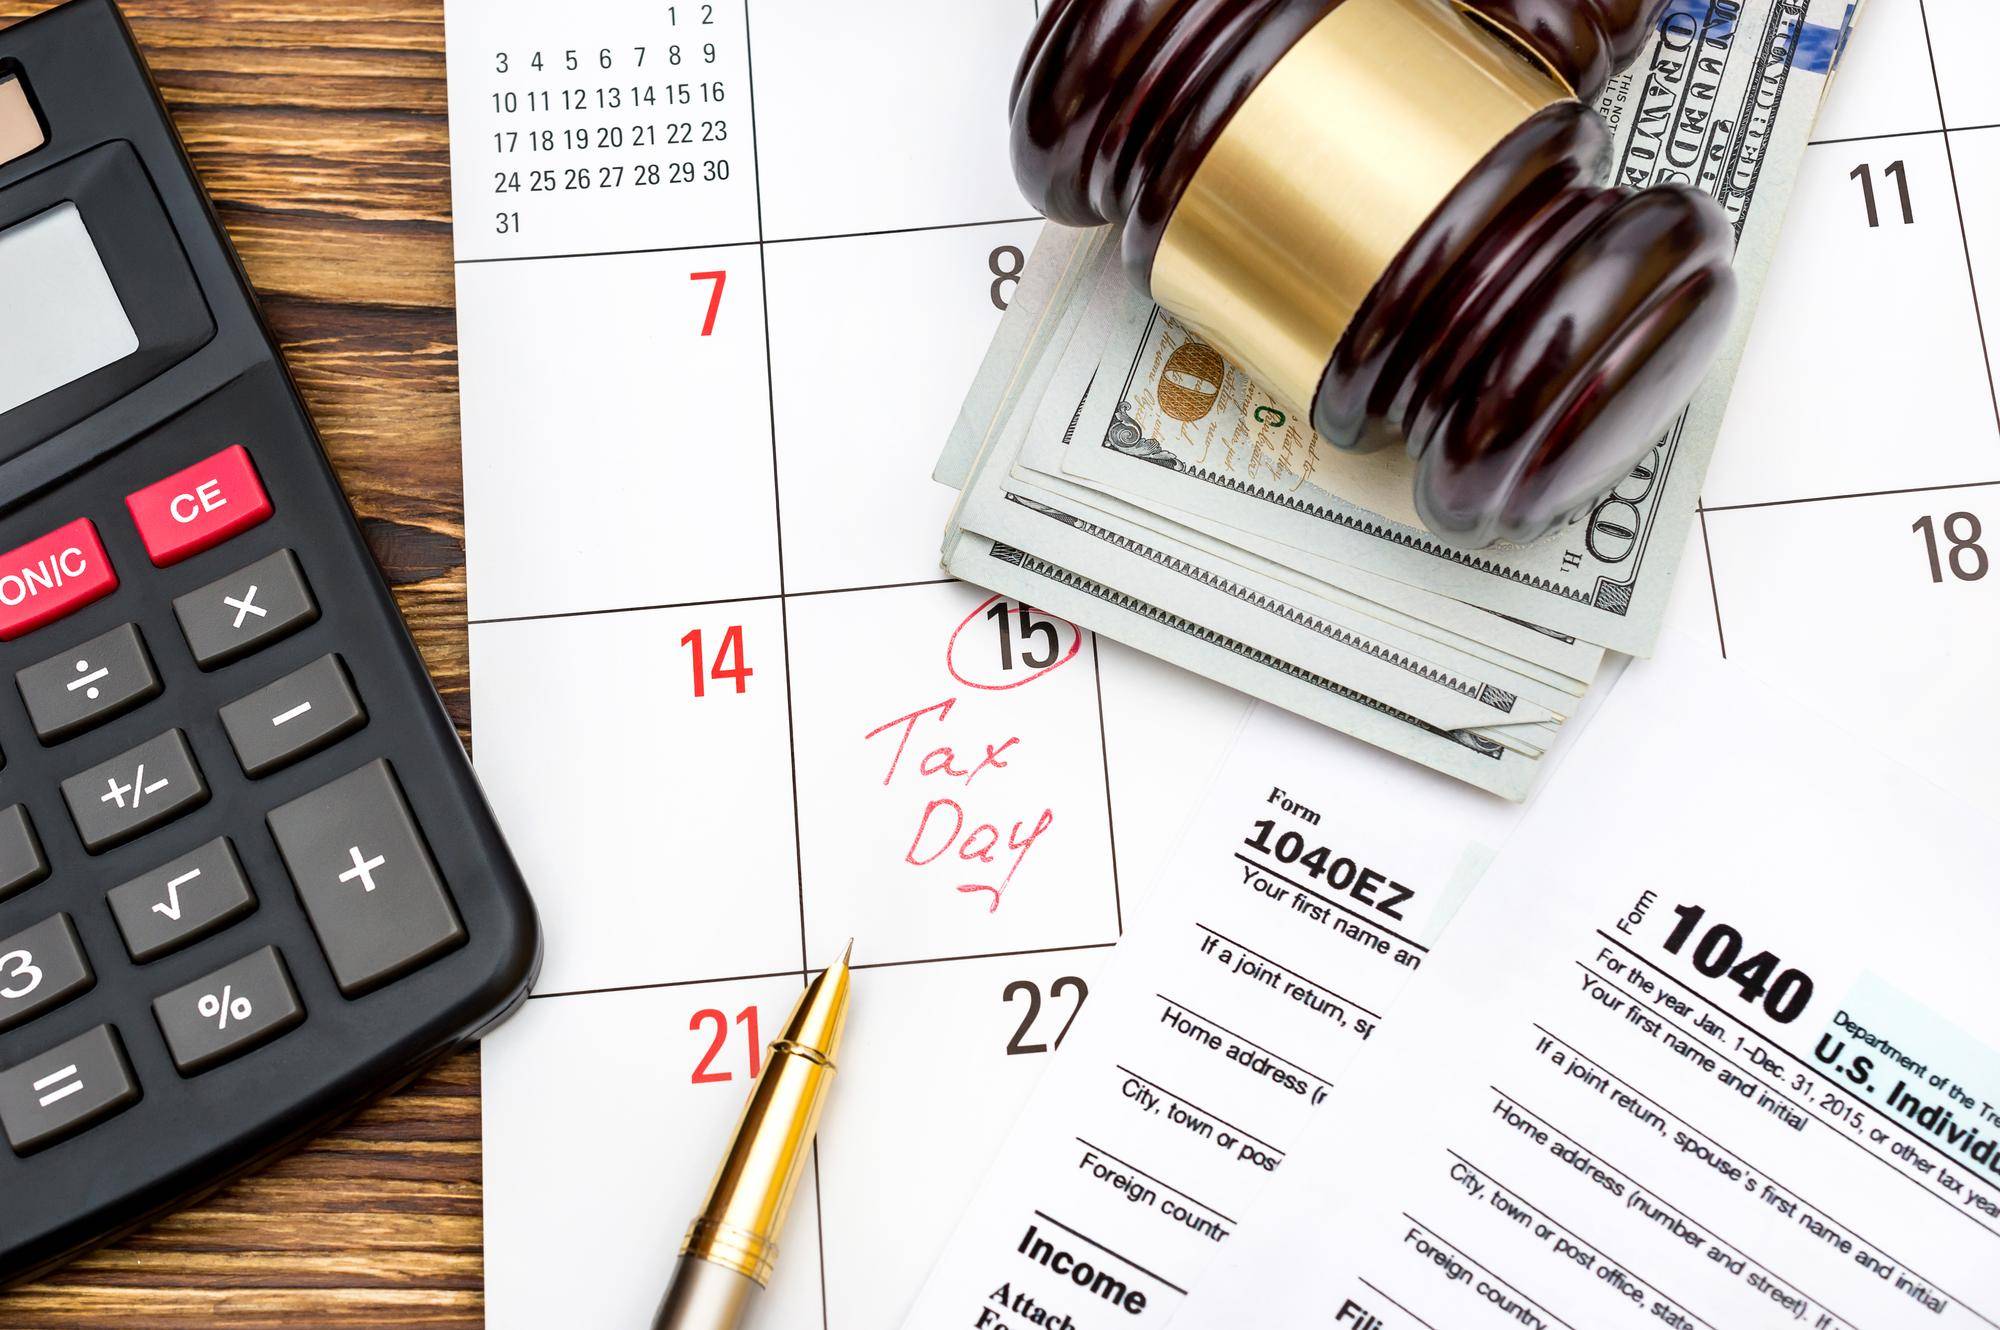 1 2
3 4 5 6 7 8 9
10 11 12 13 14 15 16
17 18 19 20 21 22 23
24 25 26 27 28 29 30
31
7
8
11
14
15
18
Tax
Day
21
22
CE
ON/C
×
÷
−
+/−
+
√
3
%
=
THIS NOT
H1
100
Form
1040EZ
Your first name an
If a joint return, sp
Home address (n
City, town or post
Foreign countr
Income
Attach
Form
1040
Department of the Tre
U.S. Individu
For the year Jan. 1–Dec. 31, 2015, or other tax year
Your first name and initial
If a joint return, spouse's first name and initial
Home address (number and street). If
City, town or post office, state
Foreign country
Fili